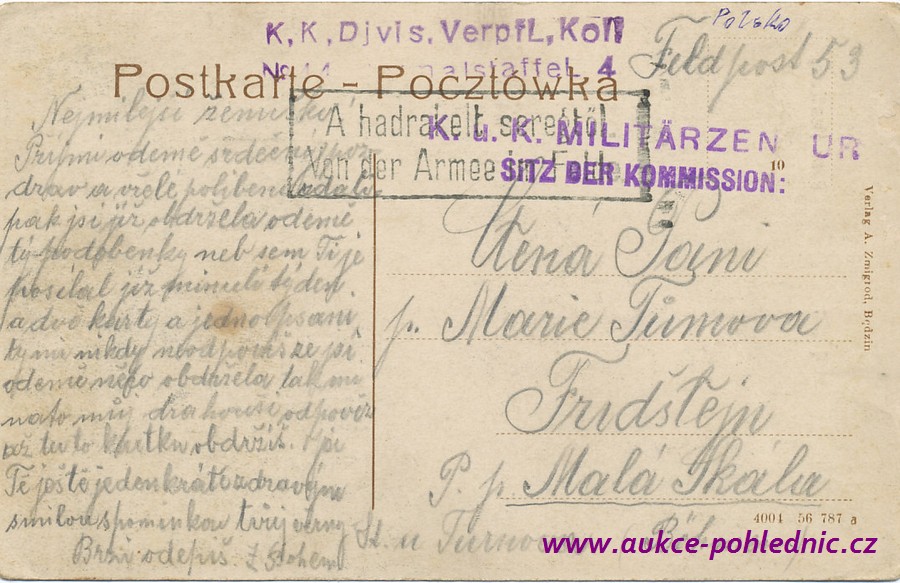 Polsko
K. K. Divis. Verpfl. Kol
No 11 staffel 4
Feldpost 53
Postkarte - Pocztówka
A hadrakelt seregtől
Von der Armee im Felde
K. u. K. MILITÄRZEN UR
SITZ DER KOMMISSION:
19
Nejmilejší ženuško!
Přijmi odemě srdečný poz
drav a vřelé políbení a dále
pak jsi již obdržela odemě
ty podobenky neb sem Ti je
posílal již minulí týden
a dvě karty a jedno psaní
ty mi nikdy neodpovíš že jsi
odemě něco obdržela tak mi
nato můj drahouši odpověz
až tuto kartku obdržíš.
Tě ještě jedenkráte zdravým
smilou spomínkou tvůj věrný
Brzi odepiš. Z Bohem
Ctěná Paní
p. Marie Tůmova
Fridštejn
P. p. Malá Skála
St. u Turnova Böh
Verlag A. Zmigrod, Będzin
4004 56 787 a
www.aukce-pohlednic.cz